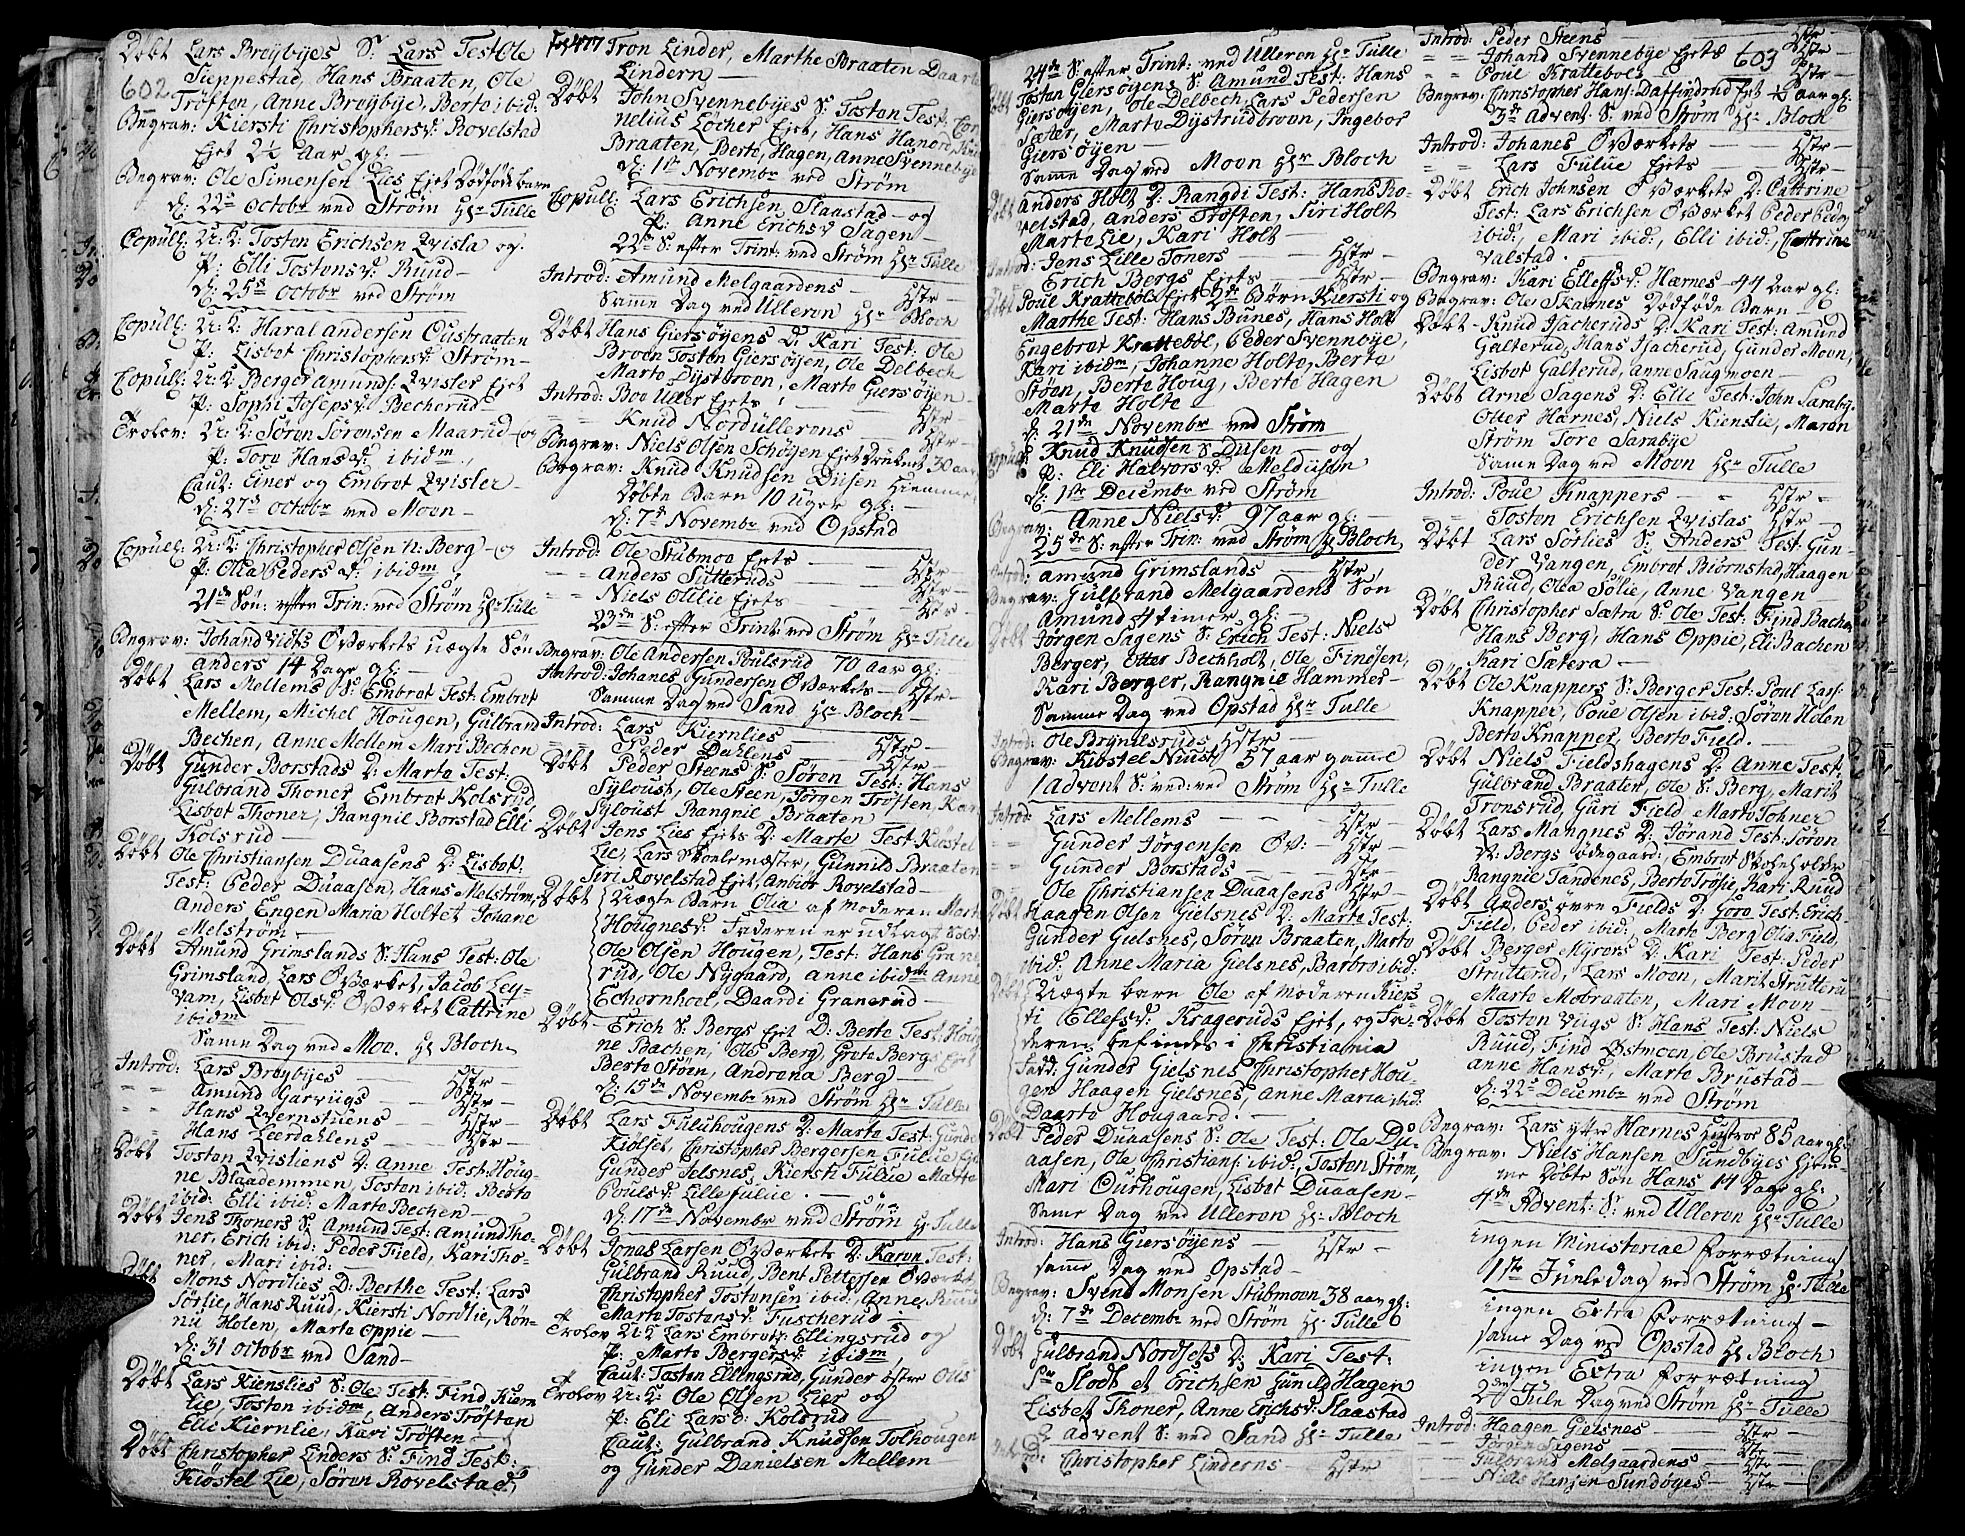 Døbt Lars Brøÿbÿes S: Lars Test Ole
602 Sieppestad, Hans Braaten, Ole
Trøften, Anne Brøÿbÿe, Berte ibid:
Begrav: Kiersti Christophersd: Rovelstad
Ejet 2½ Aar gl: —
Begrav: Ole Simensen Lies Ejet Dødføde barn
d: 22de Octobr ved Strøm Hr Tulle
Copull: U: K: Tosten Erichsen Qvisla og
P: Elli Tostensd: Ruud —
d: 25de Octobr ved Strøm
Copull: U: K: Haral Andersen Oustraaten
P: Lisbet Christophersd: Strøm —
Copul: U: K: Berger Amunds: Qvisler Ejet
P: Sophi Josepsd: Becherud —
Trolov: U: K: Søren Sørensen Maarud — og
P: Tore Hansd: ibidm
Caut: Einer og Embret Qvisler —
d: 27de Octobr ved Moen —
Copul: U: K: Christopher Olsen n: Berg — og
P: Olia Peders d: ibidm
21de Søn: efter Trin: ved Strøm Hr Tulle
Begrav: Johand Vidts Oværkets uægte Søn
Anders 14 Dage gl: —
Døbt Lars Mellems S: Embret Test: Embret
Mellem, Michel Hougen, Gulbrand
Bechen, Anne Mellem Mari Bechen
Døbt Gunder Borstads D: Marte Test:
Gulbrand Thoner Embret Kolsrud
Lisbet Thoner, Rangnil Borstad Elli
Kolsrud —
Døbt Ole Christiansen Duaasens D: Lisbet
Test: Peder Duaasen, Hans Melstrøm,
Anders Engen Maria Holtet Johane
Melstrøm —
Døbt Amund Grimslands S: Hans Test: Ole
Grimsland, Lars Oværket, Jacob Ley-
vam, Lisbet Olsd: Oværket Cattrine
ibidm —
Same Dag ved Moe. Hr Bloch
Introd: Lars Brøÿbÿes — Hstr —
" " Amund Garvigs — Hstr —
" " Hans Qvernstuens — Hstr —
" " Hans Leerdahlens — Hstr —
Døbt Tosten Qvistiens D: Anne Test: Houg-
ne, Blaademmen, Tosten ibid: Berte
ibid: Elli ibid: Marte Bechen —
Døbt Jens Thoners S: Amund Test: Amund Tho-
ner, Erich ibid: Peder Field, Kari Tho-
ner, Mari ibid: —
Døbt Mons Nordlies D: Berthe Test: Lars
Sørlie, Hans Ruud, Kiersti Nordlie, Røn-
nu Holen, Marte Oppie —
d: 31 Octobr ved Sand —
Døbt Lars Kienslies S: Ole Test: Find Kiern
lie, Tosten ibidm, Anders Trøften
Elli Kiernlie, Kari Trøften —
Døbt Christopher Linders S: Find Test:
Kiøstel Lie, Søren Rovelstad,
Fol 477 Tron Linder, Marthe Braaten Daarte
Lindern —
Døbt John Svennebÿes S: Tosten Test: Cor
nelius Løcher Ejet, Hans Hanerd, Knud
Braaten, Berte, Hagen, Anne Svennebÿe
d: 1ste Novembr ved Strøm
Copull: Lars Erichsen Slaastad — og
P: Anne Erichsd Sagen —
22de S: efter Trin: ved Strøm Hr Tulle
Introd: Amund Melgaardens — Hstr —
Same Dag ved Ulleron Hr Bloch
Døbt Hans Giersøÿens D: Kari Test: Ole
Broen Tosten Giersøÿen, Ole Delbech
Marte Dÿstbroen, Marte Giersøÿen
Introd: Boe Uller Ejets — Hstr —
" " Knud Nordullerens — Hstr —
Begrav: Niels Olsen Schøÿen Ejet Druknet 30 aar
Begrav: Knud Knudsen Disen Hiemme
Døbte Barn 10 Uger gl: —
d: 7de Novembr ved Opstad
Introd: Ole Stubmoe Ejets — Hstr —
" " Anders Sutteruds — Hstr —
" " Niels Olilie Ejets — Hstr —
23de S: efter Trint: ved Strøm Hr Tulle
Begrav: Ole Andersen Poulsrud 70 aar gl:
Introd: Johanes Gundersen Oværkets — Hstr —
Same Dag ved Sand Hr Bloch —
Introd: Lars Kiernlies — Hstr —
Peder Dahlens — Hstr —
Døbt Peder Steens S: Søren Test: Hans
Sÿloust, Ole Steen, Jørgen Trøften, Kari
Sÿloust Rangnil Braaten
Døbt Jens Lies Ejets D: Marte Test: Kiøstel
Lie, Lars Skoelemester, Gunnild Braaten
Siri Rovelstad Ejet, Anbiør Rovelstad —
Døbt Uægte Barn Olia af Moderen Marte
Hougnesd: Faderen er udlagt Sold:
Ole Olsen Hougen, Test: Hans Grane
rud, Ole Nÿgaard, Anne ibidm Anne
Echornhoel, Daardi Granerud —
Døbt Erich S: Bergs Ejet D: Berte Test: Houg
ne Bachen, Ole Berg, Grete Berg Ejet
Berte Støen, Andrena Berg —
d: 15de Novembr ved Strøm Hr Tulle
Døbt Lars Fuluhougens D: Marte Test: Gunder
Kiølset, Christopher Bergersen Fulue Ejet
Gunder Jelsnes, Kiersti Fulue Marte
Poulsd: Lillefulue. —
d: 17de Novembr ved Strøm Hr Tulle
Døbt Jonas Larsen Oværkets D: Karen Test:
Gulbrand Ruud, Bent Pettersen Oværket
Christopher Tostensen ibid: Anne Ruud
Marte Tostensd: Fuscherud —
Trolov U: K Lars Embretz: Ellingsrud og
P: Marte Bergersd: ibidm
Caut: Tosten Ellingsrud, Gunder Østre Ous
Trolov U: K: Ole Olsen Lier og
P: Eli Lars d: Kolsrud —
Caut: Gulbrand Knudsen Tolhougen
og Gunder Danielsen Mellem
24de S: efter Trint: ved Ulleron Hr Tulle
Tosten Giersøÿens S: Amund Test: Hans
Giersøÿen, Ole Delbech, Lars Pedersen
Sæter, Marte Dÿstrudbroen, Ingebor
Giersøÿen —
Same Dag ved Moen Hr Bloch
Døbt Anders Holt D: Rangdi Test: Hans Ro-
velstad, Anders Trøften, Siri Holt
Marte Lie, Kari Holt —
Introd: Jens Lille Toners — Hstr —
Erich Bergs Ejets — Hstr —
Døbt Poul Krattebøl Ejet 2de Børn Kiersti og
Marthe Test: Hans Bunes, Hans Holt
Engebret Krattebøl, Peder Svennebÿe,
Kari ibidm, Johanne Holte, Berte
Støen, Berte Houg, Berte Hagen
Marte Holte
d: 21de Novembr ved Strøm
Copul: Knud Knudsen S Disen — og
P: Eli Halvorsd: Meldiisen
d: 1ste Decembr ved Strøm
Begrav: Anne Nielsd: 97 aar gl: —
25de S: efter Trin: ved Strøm Hr Bloch
Introd: Amund Grimslands — Hstr
Begrav: Gulbrand Melgaardens Søn
Amund 4 timer gl: —
Døbt Jørgen Sagens S: Erich Test: Niels
Berger, Otter Bechholt, Ole Finesen,
Kari Berger, Rangnil Hammes —
Same Dag ved Opstad Hr Tulle
Introd: Ole Brÿnilsruds Hstr —
Begrav: Kibstel Nuust 57 aar gamel
1 Advent S: ved: ved Strøm Hr Tulle
Introd: Lars Mellems — Hstr —
" " Gunder Jørgensen Ov: — Hstr —
" " Gunder Borstads — Hstr —
Ole Christiansen Duaasens Hstr —
Døbt Haagen Olsen Gielsnes D: Marte Test:
Gunder Gielsnes, Søren Braaten, Marte
ibid: Anne Maria Gielsnes, Barbro ibid:
Døbt Uægte barn Ole af Moderen Kiers
ti Ellefsd: Krageruds Ejet, og Fa-
deren befindes i Christiania
Fadd: Gunder Gielsnes Christopher Hou-
gen Haagen Gielsnes, Anne Maria ibid:
Daarte Hougaard. —
Døbt Peder Duaasens S: Ole Test: Ole Du-
aasen, Ole Christians: ibid: Tosten Strøm,
Mari Ourhougen, Lisbet Duaasen —
Same Dag ved Ulleron Hr Bloch
Introd: Hans Giersøÿens — Hstr —
Same Dag ved Opstad —
Begrav: Svend Monsen Stubmoen 38 aar gl:
d: 7de Decembr ved Strøm Hr Tulle
Døbt Gulbrand Nordsets D: Kari Test:
Sr Flodt et Erichsen Gunild Hagen
Lisbet Thoner, Anne Erichsd: Slaastad
2 Advent S: ved Sand Hr Tulle
Introd: Christopher Linderns — Hstr
Introd: Peder Steens — Hstr —
" " Johand Svennebÿe Ejets — Hstr — 603
" " Poul Krattebøls — Hstr —
Begrav: Christopher Hans: Daffindrud Ejet ½ aar gl:
3de Advent S: ved Strøm Hr Bloch
Introd: Johanes Oværkets — Hstr —
" " Lars Fulue Ejets — Hstr —
Døbt Erich Johnsen Oværkets D: Cattrine
Test: Lars Erichsen Oværket Peder Peder
ibid:, Mari ibid:, Elli ibid:, Cattrine
Valstad. —
Begrav: Kari Elleffsd: Hærnes 44 aar gl:
Begrav: Ole Skarnes Dødføde Barn —
Døbt Knud Isacheruds D: Kari Test: Amund
Galterud, Hans Isacherud, Gunder Moen,
Lisbet Galterud, Anne Saugmoen —
Døbt Arne Sagens D: Elli Test: John Sarabÿe
Otter Harnes, Niels Kienslie, Maren
Strøm Tore Sarabÿe
Same Dag ved Moen Hr Tulle
Introd: Poul Knappers — Hstr —
" " Tosten Erichsen Qvislas — Hstr —
Døbt Lars Sørlies S: Anders Test: Gun-
der Vangen, Embret Biørnstad, Haagen
Ruud, Olea Sølie, Anne Vangen
Døbt Christopher Sætra S: Ole Test: Find Bachen
Hans Berg, Hans Oppie, Eli Bachen
Kari Sætera —
Døbt Ole Knappers S: Berger Test: Poul Lars:
Knapper, Poul Olsen ibid: Søren Holen
Berte Knapper, Berte Field. —
Døbt Niels Fieldshagens D: Anne Test:
Gulbrand Braaten, Ole S: Berg, Marit
Tronsrud, Guri Field Marte Tohner
Døbt Lars Mangnes D: Jørand Test: Søren
N: Bergs ødegaard, Embret Skoleholder
Rangnie Tandenes, Berte Trøsie, Kari Ruud
Døbt Anders øvre Fields D: Goro Test: Erich
Field, Peder ibid:, Marte Berg, Olia Field,
Døbt Berger Mÿrers D: Kari Test: Peder
Strutterud, Lars Moen, Marit Strutteru
Marte Mobraaten, Mari Moen
Døbt Tosten Viigs S: Hans Test: Niels
Ruud, Find Østmoen, Ole Brustad
Anne Hansd:, Marte Brustad —
d: 22de Decembr ved Strøm
Begrav: Lars ÿtre Hærnes Hustroe 85 aar gl:
Begrav: Niels Hansen Sundbÿes Hjem-
me Døbte Søn Hans 14 Dage gl:
4de Advent S: ved Ulleron Hr Tulle
ingen Ministerial forretning
1ste Juuledag ved Strøm Hr Tulle
ingen Extra forretning —
Same Dag ved Opstad Hr Bloch
ingen Extra forretning
2den Jule Dag ved Strøm Hr Tulle
Introd: Haagen Gielsnes — Hstr —
Jørgen Sagens — Hstr —
Gulbrand Melgaardens — Hstr —
Niels Hansen Sundbÿes — Hstr —